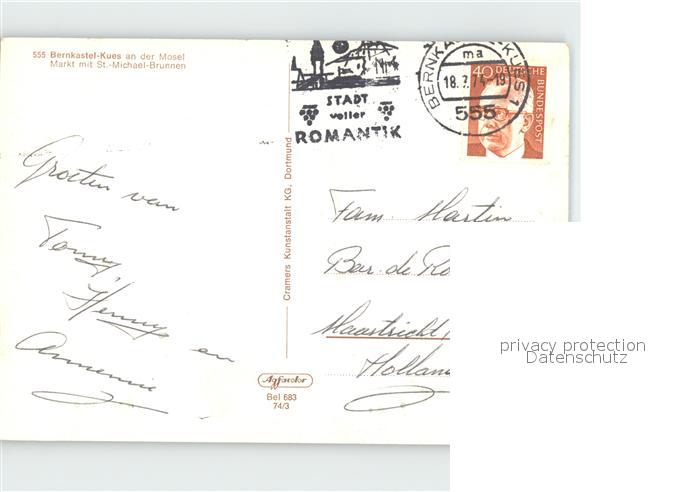 555 Bernkastel-Kues an der Mosel
Markt mit St.-Michael-Brunnen
STADT
voller
ROMANTIK
BERNKASTEL-KUES 1
ma
18.
74-19
555
40 DEUTSCHE
BUNDESPOST
Groeten van
Tonny,
Henny en
Annemie
Cramers Kunstanstalt KG. Dortmund
Fam. Martin
Bar. de Ro
Maastricht
Holland
Agfacolor
Bel 683
74/3
privacy protection
Datenschutz